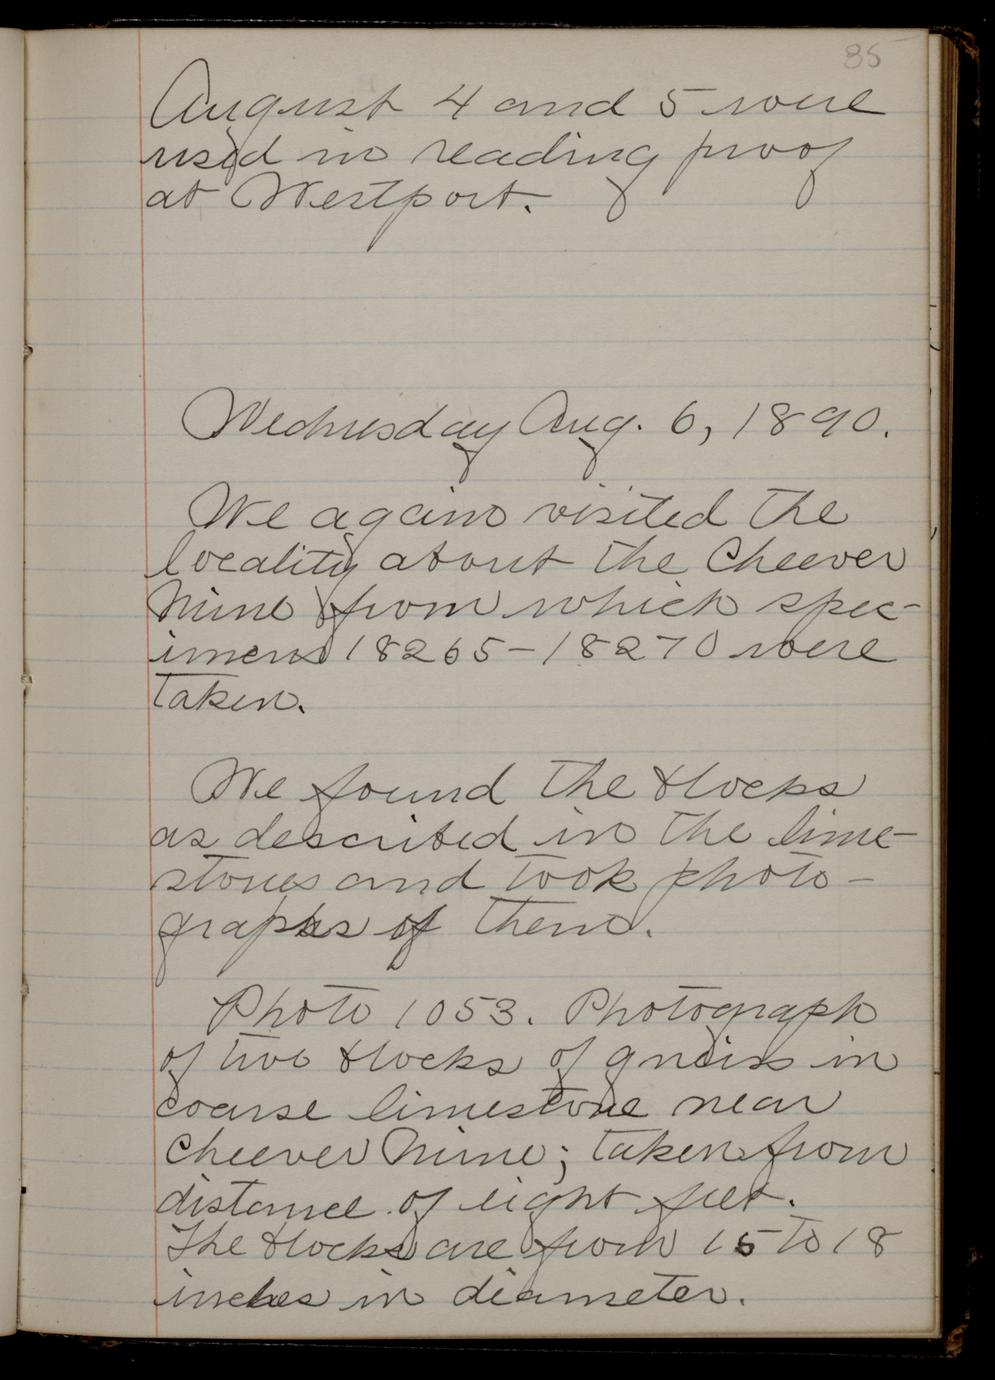 85
August 4 and 5 were
used in reading proof
at Westport.
Wednesday Aug. 6, 1890.
We again visited the
locality about the Cheever
Mine from which spec-
imens 18265-18270 were
taken.
We found the blocks
as described in the lime-
stones and took photo-
graphs of them.
Photo 1053. Photograph
of two blocks of gneiss in
coarse limestone near
Cheever Mine; taken from
distance of eight feet.
The blocks are from 15 to 18
inches in diameter.